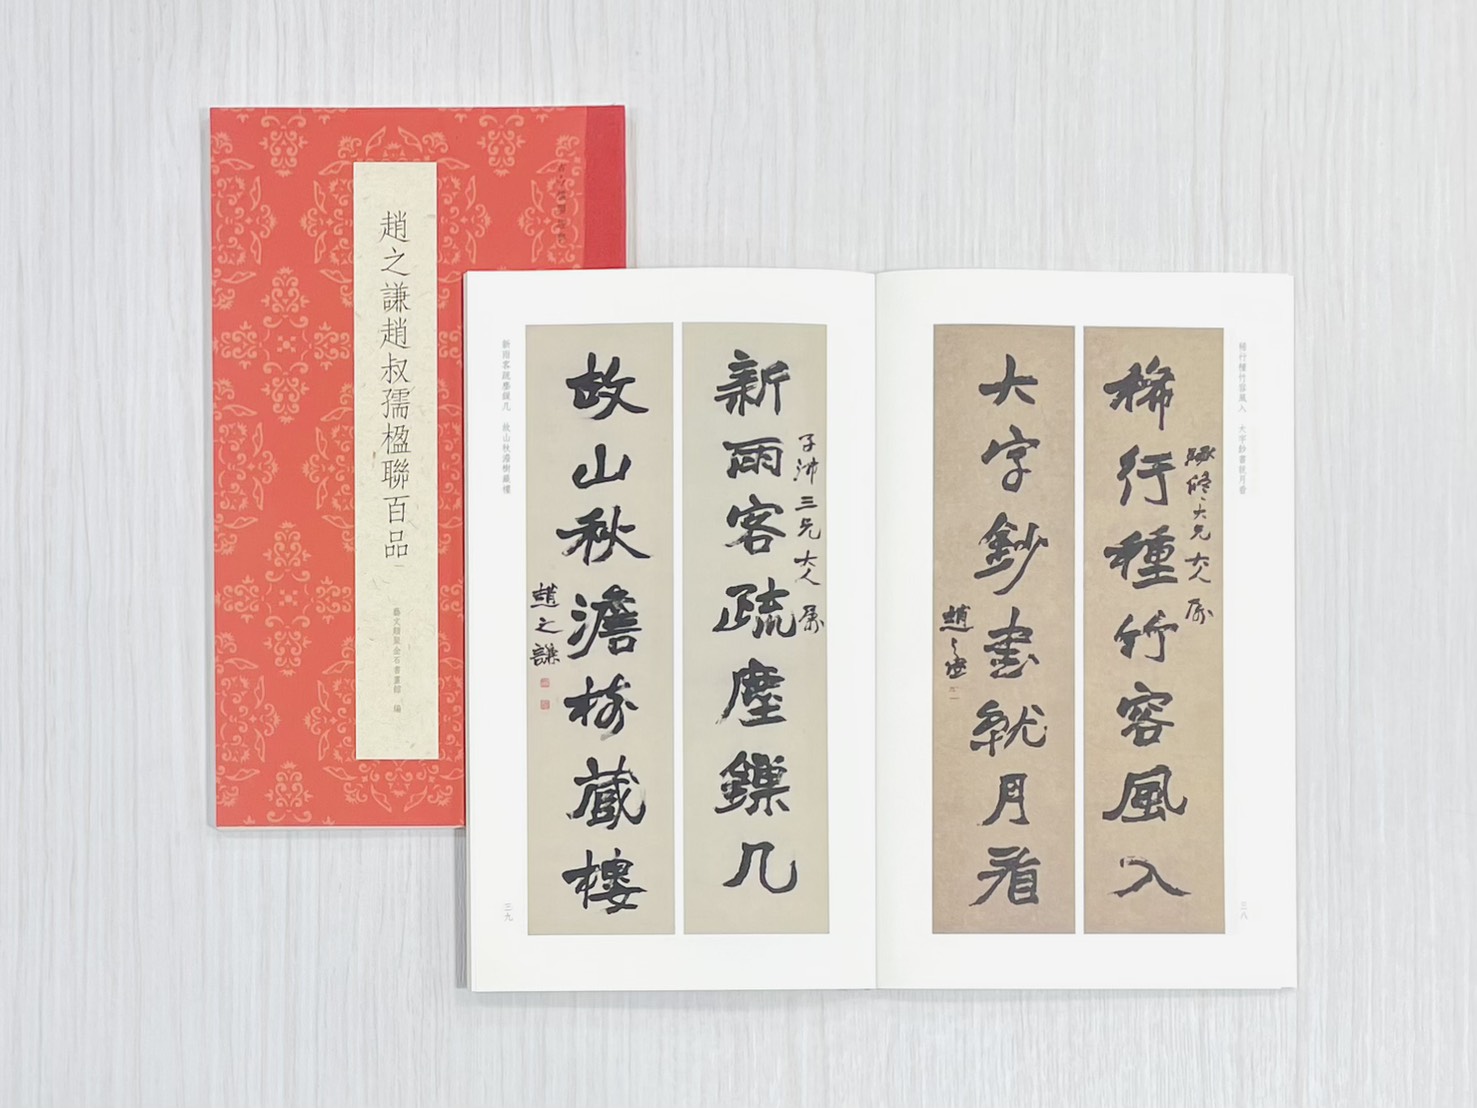 趙之謙趙叔孺楹聯百品
藝文類聚金石書畫館 編
稀行種竹容風入 大字鈔書就月看
稀行種竹容風入
大兄大人屬
大字鈔書就月看
趙之謙
三八
新雨客疏塵鏁几 故山秋澹樹藏樓
新雨客疏塵鏁几
子沛三兄大人屬
故山秋澹樹藏樓
趙之謙
三九